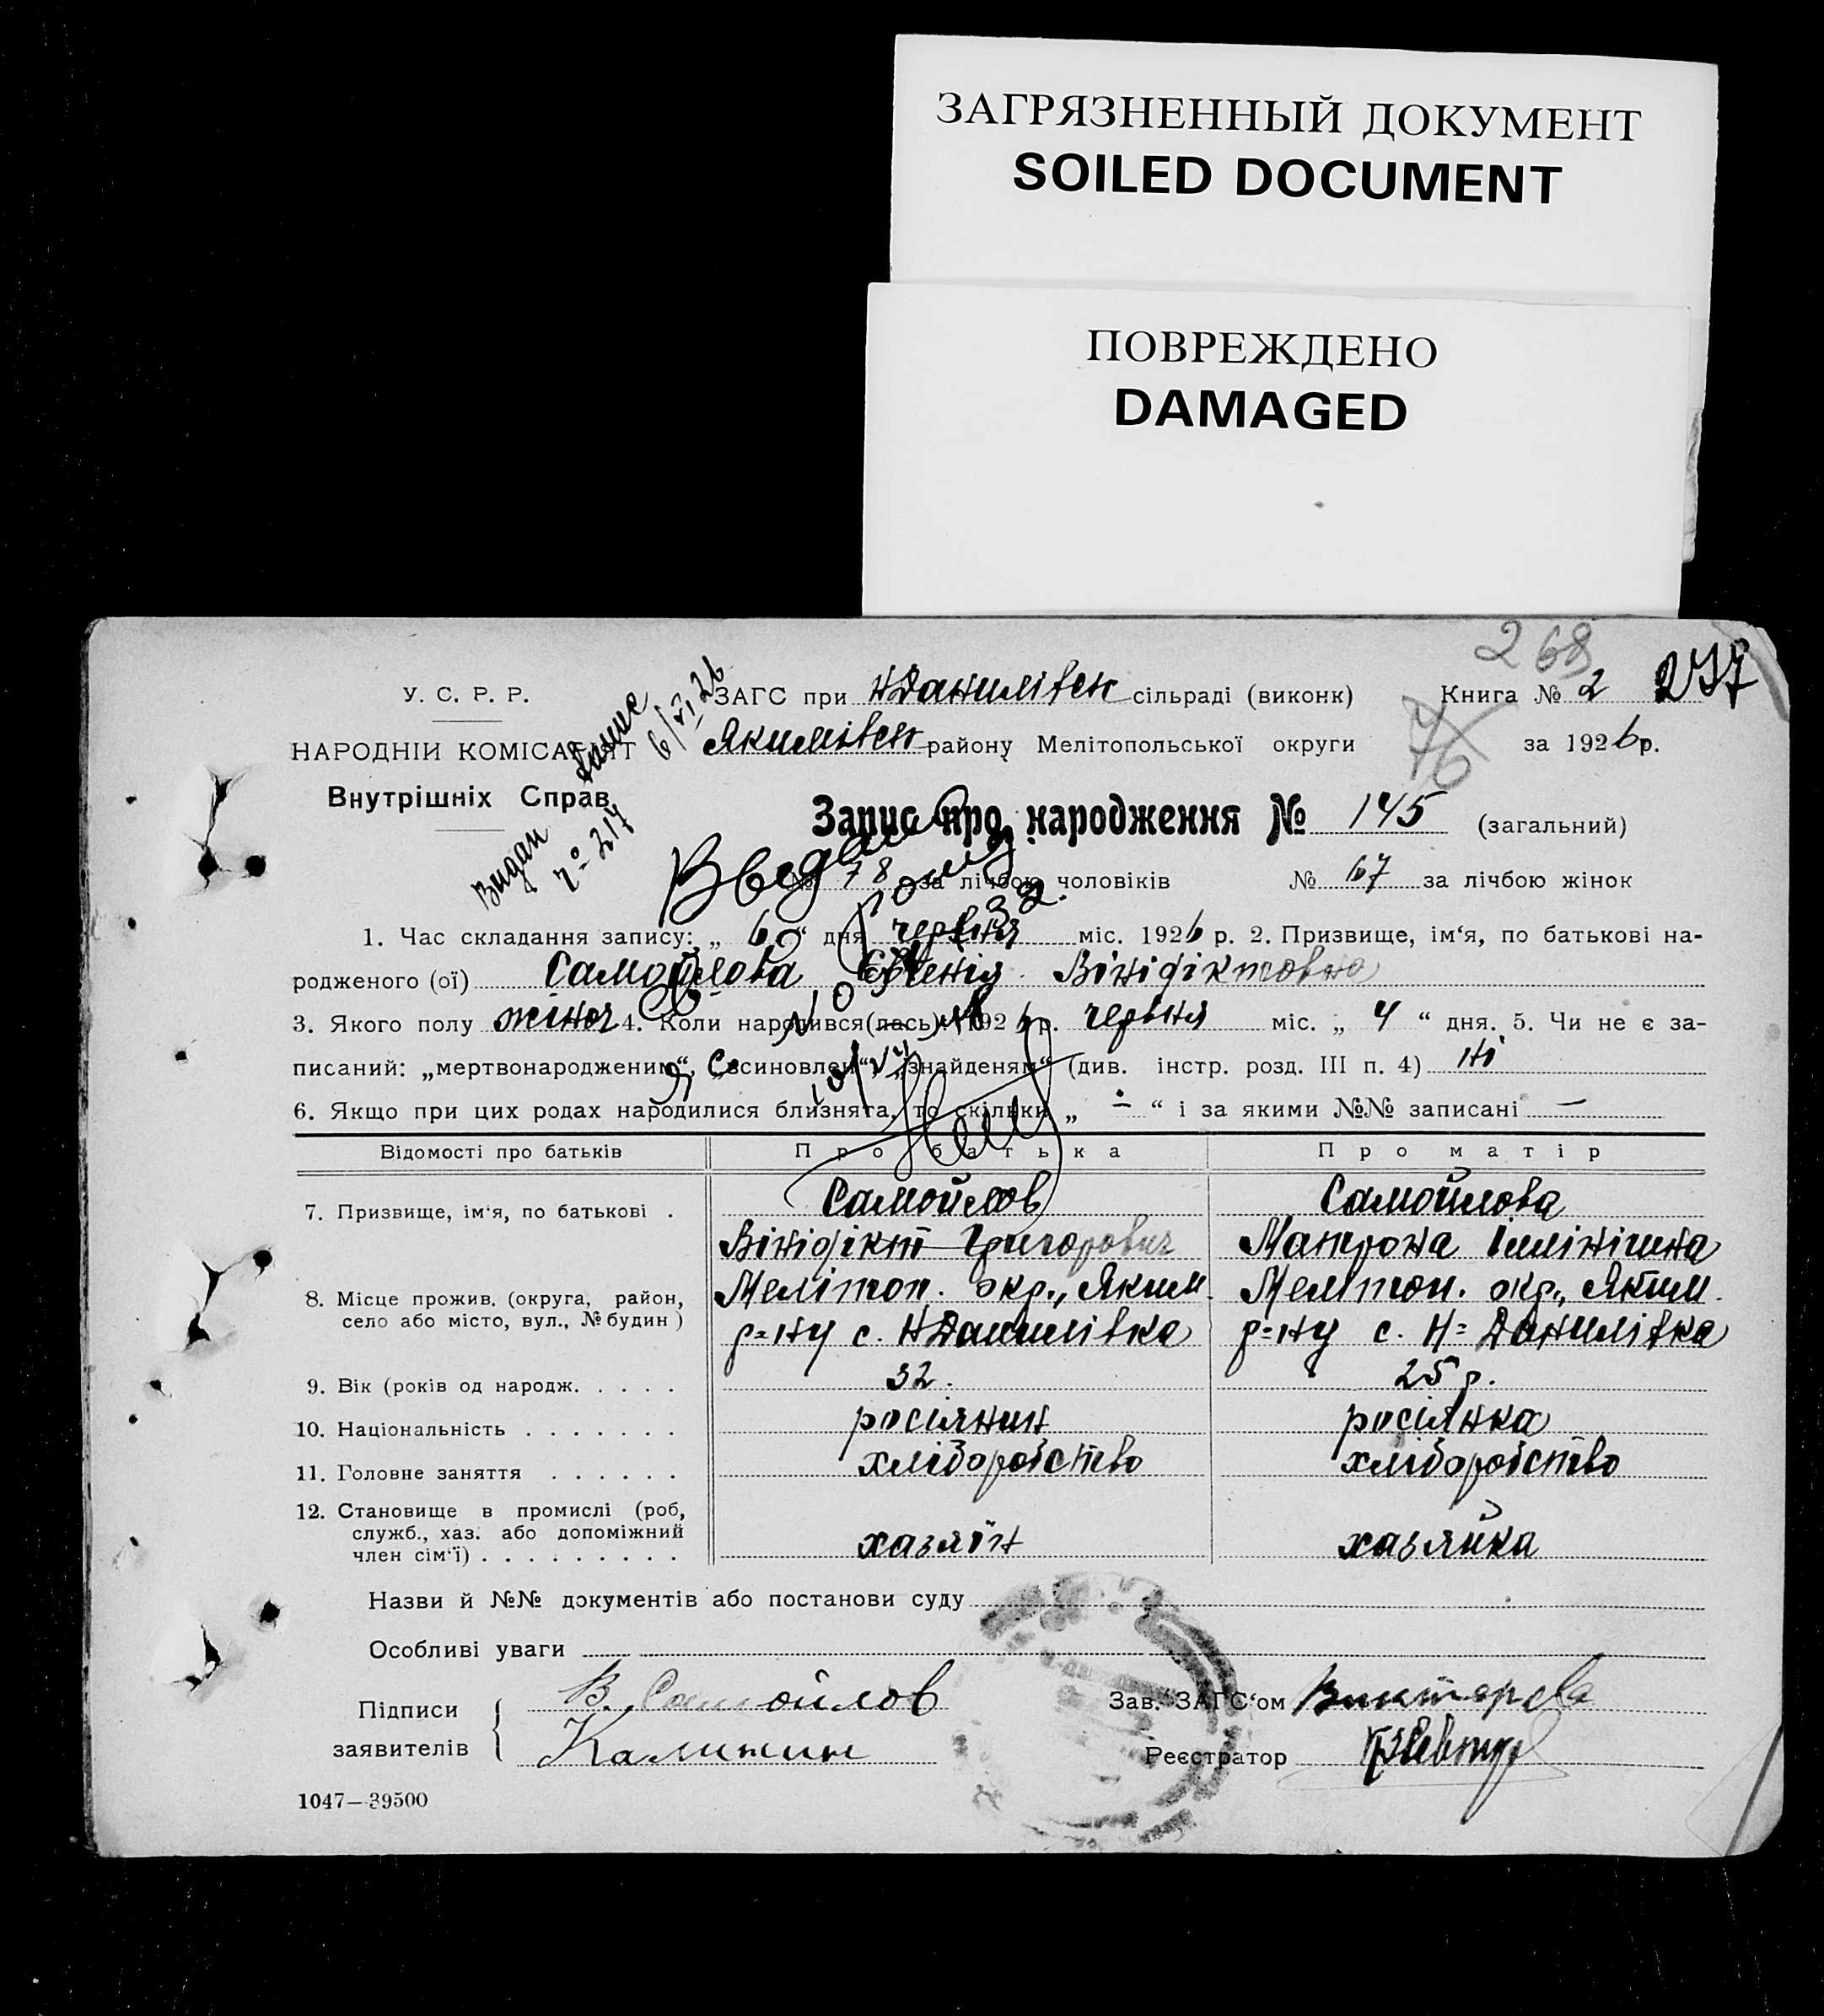 ЗАГРЯЗНЕННЫЙ ДОКУМЕНТ
SOILED DOCUMENT
ПОВРЕЖДЕНО
DAMAGED
268
277
У. С. Р. Р.
ЗАГС при НДанилівськ сільраді (виконк) Книга № 2
НАРОДНІЙ КОМІСАРІЯТ
Якимівськ району Мелітопольської округи за 1926 р.
76
Внутрішніх Справ
Видан
№ 217
6/VI 26
Запис про народження № 145 (загальний)
№ 78 за лічбою чоловіків № 67 за лічбою жінок
1. Час складання запису: „ 6 “ дня червня міс. 1926 р. 2. Призвище, ім‘я, по батькові на-
родженого (ої) Самойлова Євгенія Вінідіктовна
3. Якого полу жіноч 4. Коли народився(лась) 1926 р. червня міс. „ 4 “ дня. 5. Чи не є за-
писаний: „мертвонародженим“, „всиновлен“, „знайденям“ (див. інстр. розд. III п. 4) ні
6. Якщо при цих родах народилися близнята, то скільки „ - “ і за якими №№ записані —
Відомості про батьків Про батька Про матір
7. Призвище, ім‘я, по батькові . Самойлов Самойлова
Вінідікт Григорович Матрона Іллінішна
8. Місце прожив. (округа, район, Мелітоп. окр., Яким. Мелітоп. окр., Яким.
село або місто, вул., № будин ) р=ну с. НДанилівка р=ну с. Н=Данилівка
9. Вік (років од народж. . . . . 32. 25 р.
10. Національність . . . . . . . росіянин росіянка
11. Головне заняття . . . . . . хліборобство хліборобство
12. Становище в промислі (роб,
служб., хаз. або допоміжний
член сім‘ї) . . . . . . . . . хазяїн хазяйка
Назви й №№ документів або постанови суду
Особливі уваги
Підписи
заявителів
В. Самойлов
Калинин
Зав. ЗАГС‘ом
Реєстратор
1047—39500